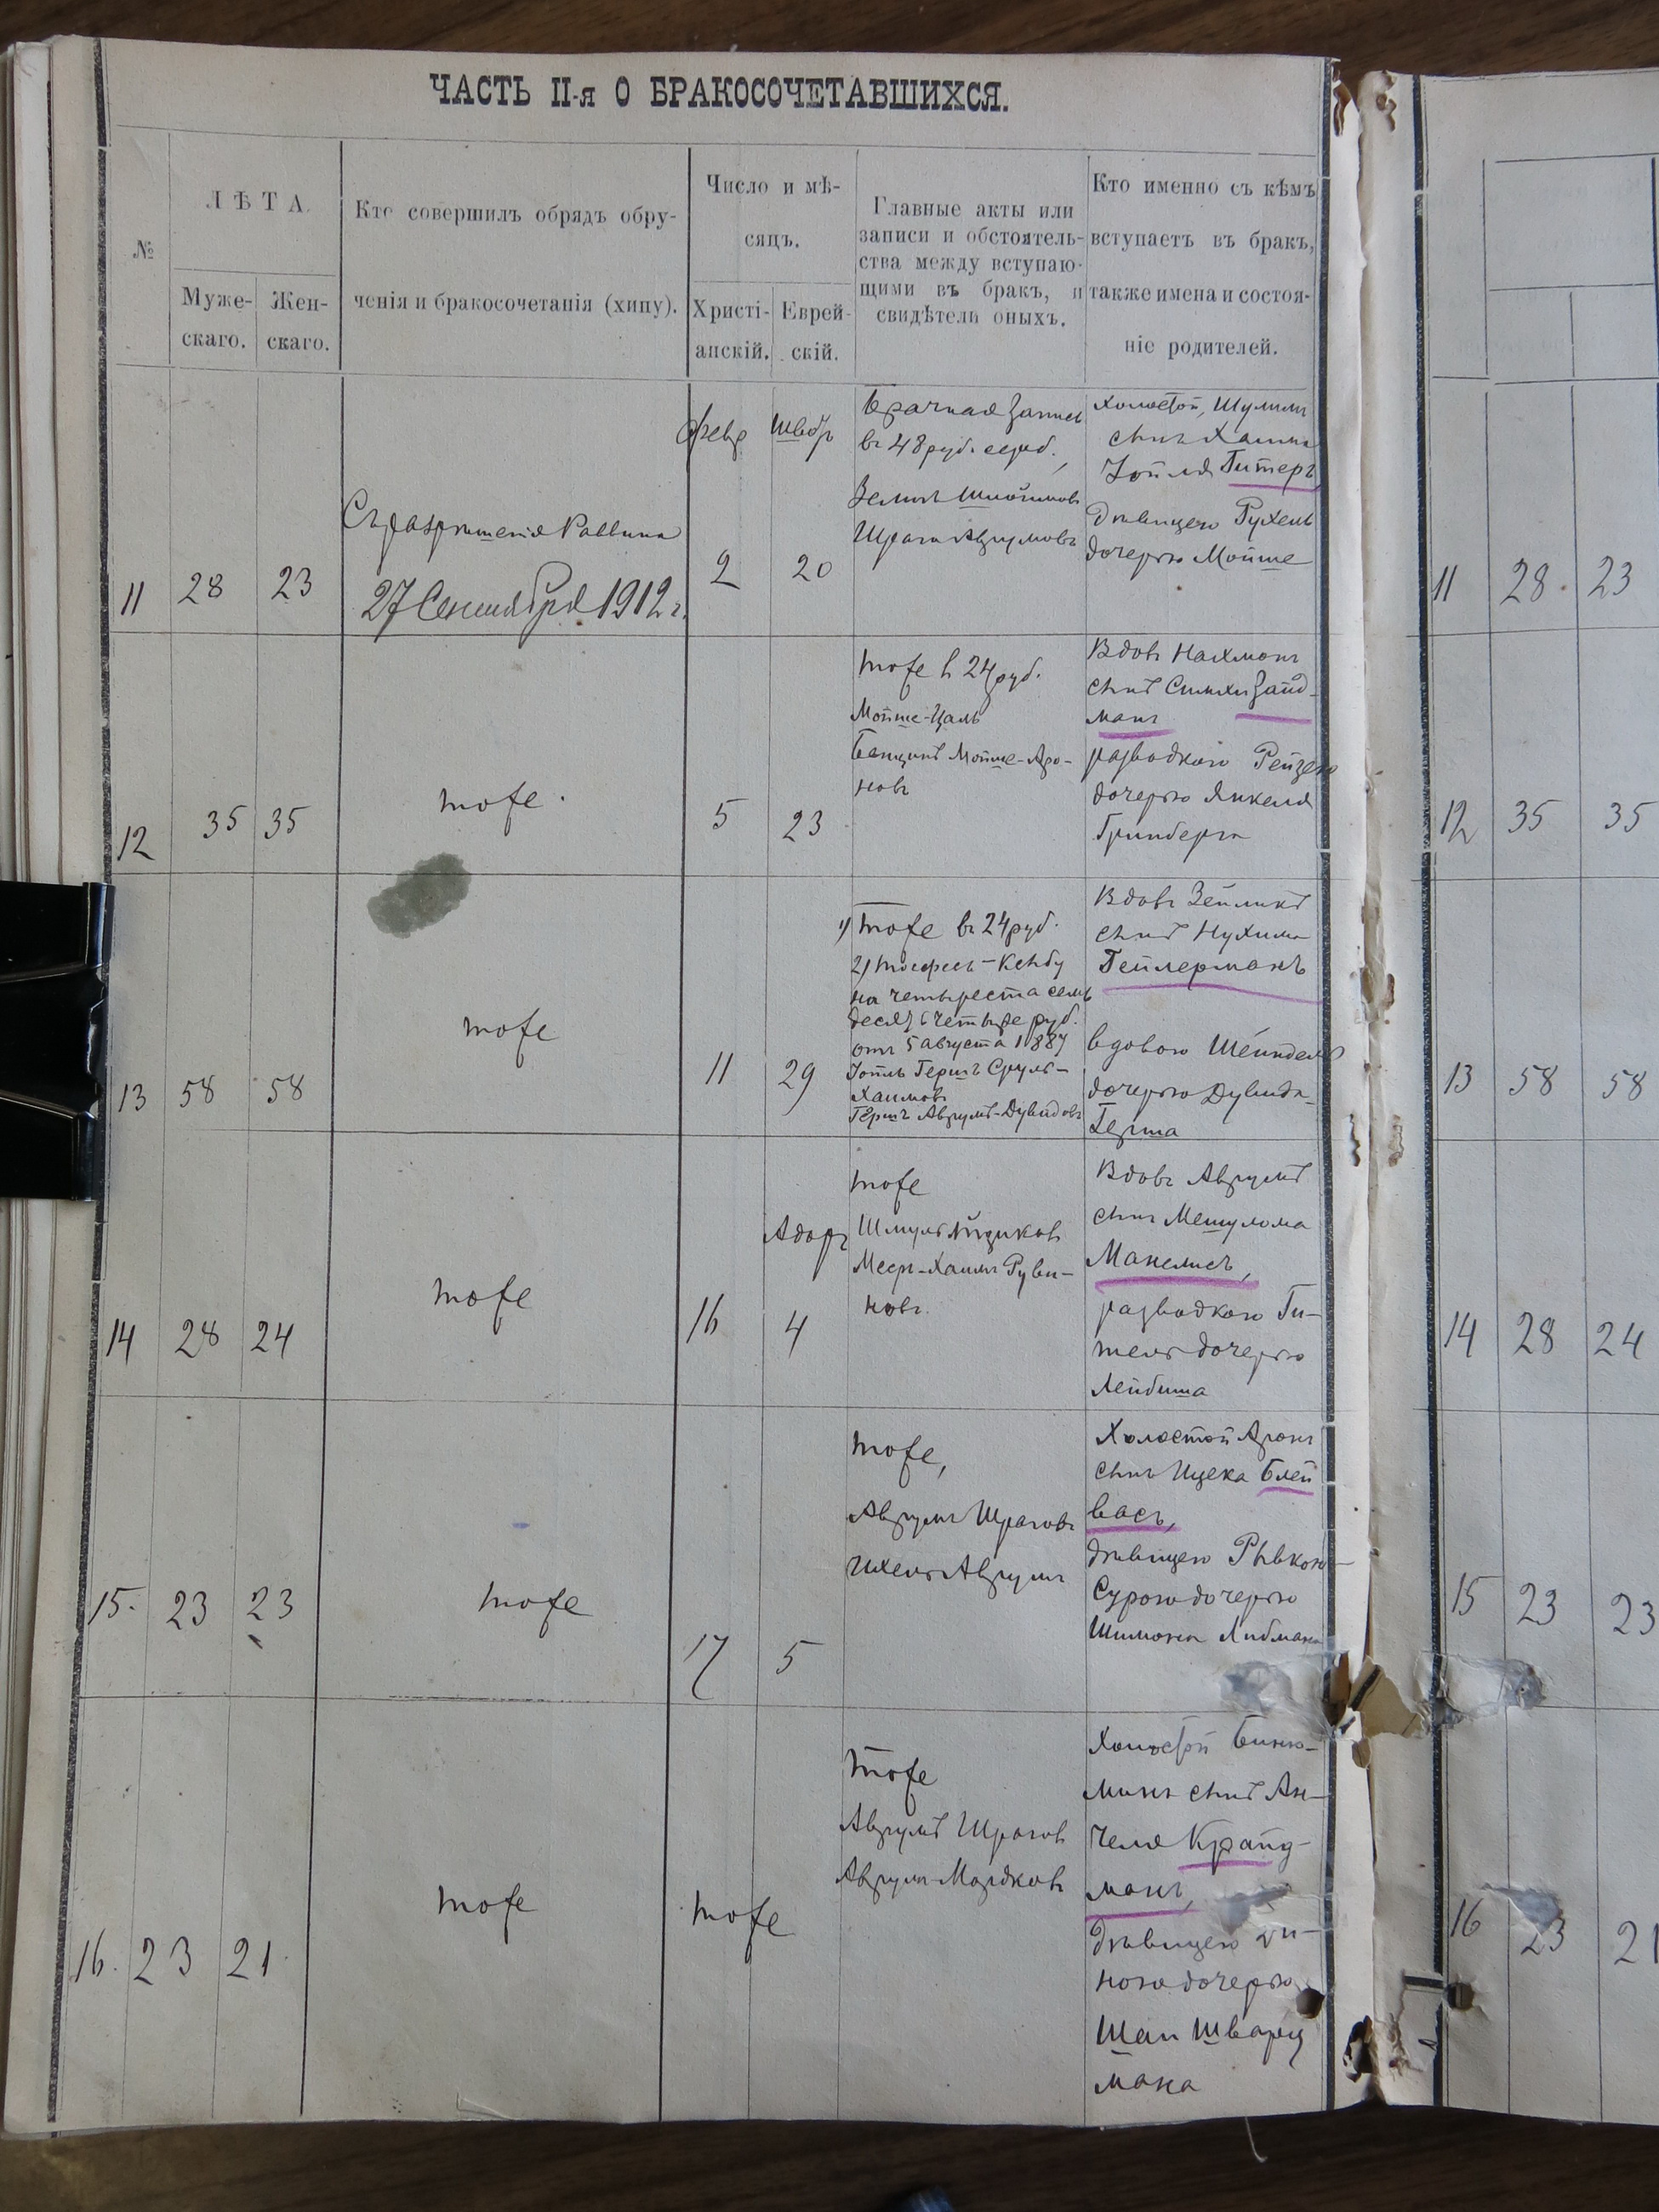 ЧАСТЬ II-я О БРАКОСОЧЕТАВШИХСЯ.
№
ЛѢТА.
Муже-
скаго.
Жен-
скаго.
Кто совершилъ обрядъ обру-
ченія и бракосочетанія (хипу).
Число и мѣ-
сяцъ.
Христі-
анскій.
Еврей-
скій.
Главные акты или
записи и обстоятель-
ства между вступаю-
щими въ бракъ, и
свидѣтели оныхъ.
Кто именно съ кѣмъ
вступаетъ въ бракъ,
также имена и состоя-
ніе родителей.
11
28
23
Съ разрѣшенія Раввина
27 Сентября 1912 г.
Февр
2
Шварь
20
брачная запись
въ 48 руб. сереб.,
Зелигъ
Шрага Аврумовъ
холостой, Шулимъ
сынъ Хаима
Іойля Гитеръ,
дѣвицею Рухель
дочерью Мойше
12
35
35
тоже.
5
23
тоже в 24 руб.
Мойше-Цаль
Бенционъ Мойше-Аро-
новъ
Вдовъ Нахмонъ
сынъ Симхи Зайд-
манъ
разводкою Рейзею
дочерью Янкеля
Гринберга
13
58
58
тоже
11
29
1) тоже въ 24 руб.
2) тосфесъ-Ксыбу
на четыреста семь
десят четыре руб.
отъ 5 августа 1887
Іойль Гершъ Сруль-
Хаимовъ
Гершъ Аврумъ-Дувидовъ
Вдовъ Зейликъ
сынъ Нухима
Гейлерманъ
вдовою Шейндель
дочерью Дувида-
Герша
14
28
24
тоже
16
Адаръ
4
тоже
Шмуль Айзиковъ
Мееръ-Хаимъ Руви-
новъ.
Вдовъ Аврумъ
сынъ Мешулома
Манелисъ,
разводкою Ги-
тель дочерью
Лейбиша
15.
23
23
тоже
17
5
тоже,
Аврумъ Шраговъ
Ихель Аврумъ
Холостой Аронъ
сынъ Ицека Блей
васъ,
дѣвицею Рывкою-
Сурою дочерью
Шимона Либмана
16.
23
21.
тоже
тоже
тоже
Аврумъ Шраговъ
Аврумъ-Мордковъ
Холостой Биню-
минъ сынъ Ан-
челя Крайд-
манъ,
дѣвицею
ною дочерью
Шаи Шварц
мана
11
28.
23
12
35
35
13
58
58
14
28
24
15
23
23
16
23
21